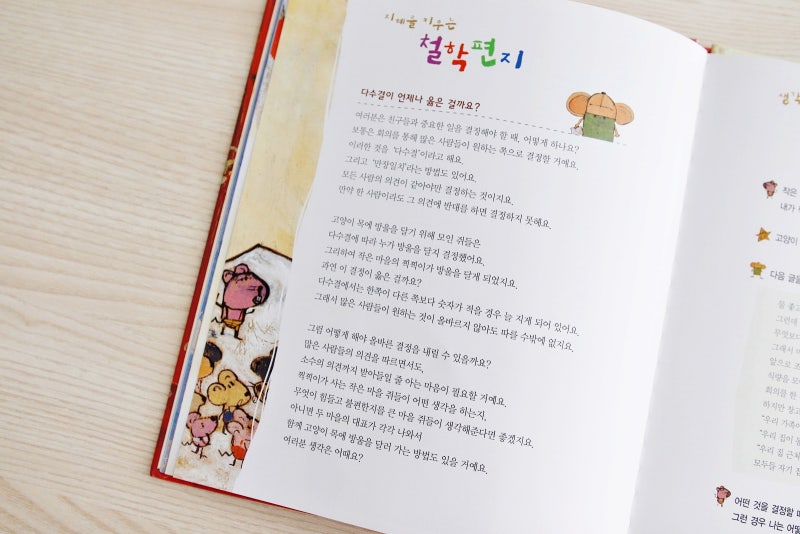 지혜를 키우는
철학편지
다수결이 언제나 옳은 걸까요?
여러분은 친구들과 중요한 일을 결정해야 할 때, 어떻게 하나요?
보통은 회의를 통해 많은 사람들이 원하는 쪽으로 결정할 거예요.
이러한 것을 '다수결'이라고 해요.
그리고 '만장일치'라는 방법도 있어요.
모든 사람의 의견이 같아야만 결정하는 것이지요.
만약 한 사람이라도 그 의견에 반대를 하면 결정하지 못해요.
고양이 목에 방울을 달기 위해 모인 쥐들은
다수결에 따라 누가 방울을 달지 결정했어요.
그리하여 작은 마을의 찍찍이가 방울을 달게 되었지요.
과연 이 결정이 옳은 걸까요?
다수결에서는 한쪽이 다른 쪽보다 숫자가 적을 경우 늘 지게 되어 있어요.
그래서 많은 사람들이 원하는 것이 올바르지 않아도 따를 수밖에 없지요.
그럼 어떻게 해야 올바른 결정을 내릴 수 있을까요?
많은 사람들의 의견을 따르면서도,
소수의 의견까지 받아들일 줄 아는 마음이 필요할 거예요.
찍찍이가 사는 작은 마을 쥐들이 어떤 생각을 하는지,
무엇이 힘들고 불편한지를 큰 마을 쥐들이 생각해준다면 좋겠지요.
아니면 두 마을의 대표가 각각 나와서
함께 고양이 목에 방울을 달러 가는 방법도 있을 거예요.
여러분 생각은 어때요?
생각
작은
내가
고양이
다음 글을
물 좋고
그런데
무엇보다
그래서
앞으로
식량을 모
회의를 한
하지만 창고
"우리 가족이
"우리 집이 동
"우리 집 근처
모두들 자기 집
어떤 것을 결정할 때
그런 경우 나는 어떻